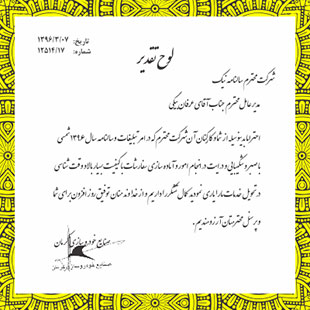 تاریخ: ۱۳۹۶/۳/۰۷
شماره: ۱۲۵۱۴/۱۷
لوح تقدیر
شرکت محترم سالنامه نیک
مدیر عامل محترم جناب آقای عرفان نیکی
احتراما بدینوسیله از شما و کارکنان آن شرکت محترم که در امر تبلیغات و سالنامه سال ۱۳۹۶ شمسی
با صبر و شکیبایی و درایت در انجام امور و آماده سازی سفارشات با کیفیت بسیار بالا و وقت شناسی
در تحویل خدمات ما را یاری نمودید کمال تشکر را داریم و از خداوند منان توفیق روز افزون برای شما
و پرسنل محترمتان آرزومندیم.
صنایع خودروسازی کرمان
صنایع خودروسازی کرمان